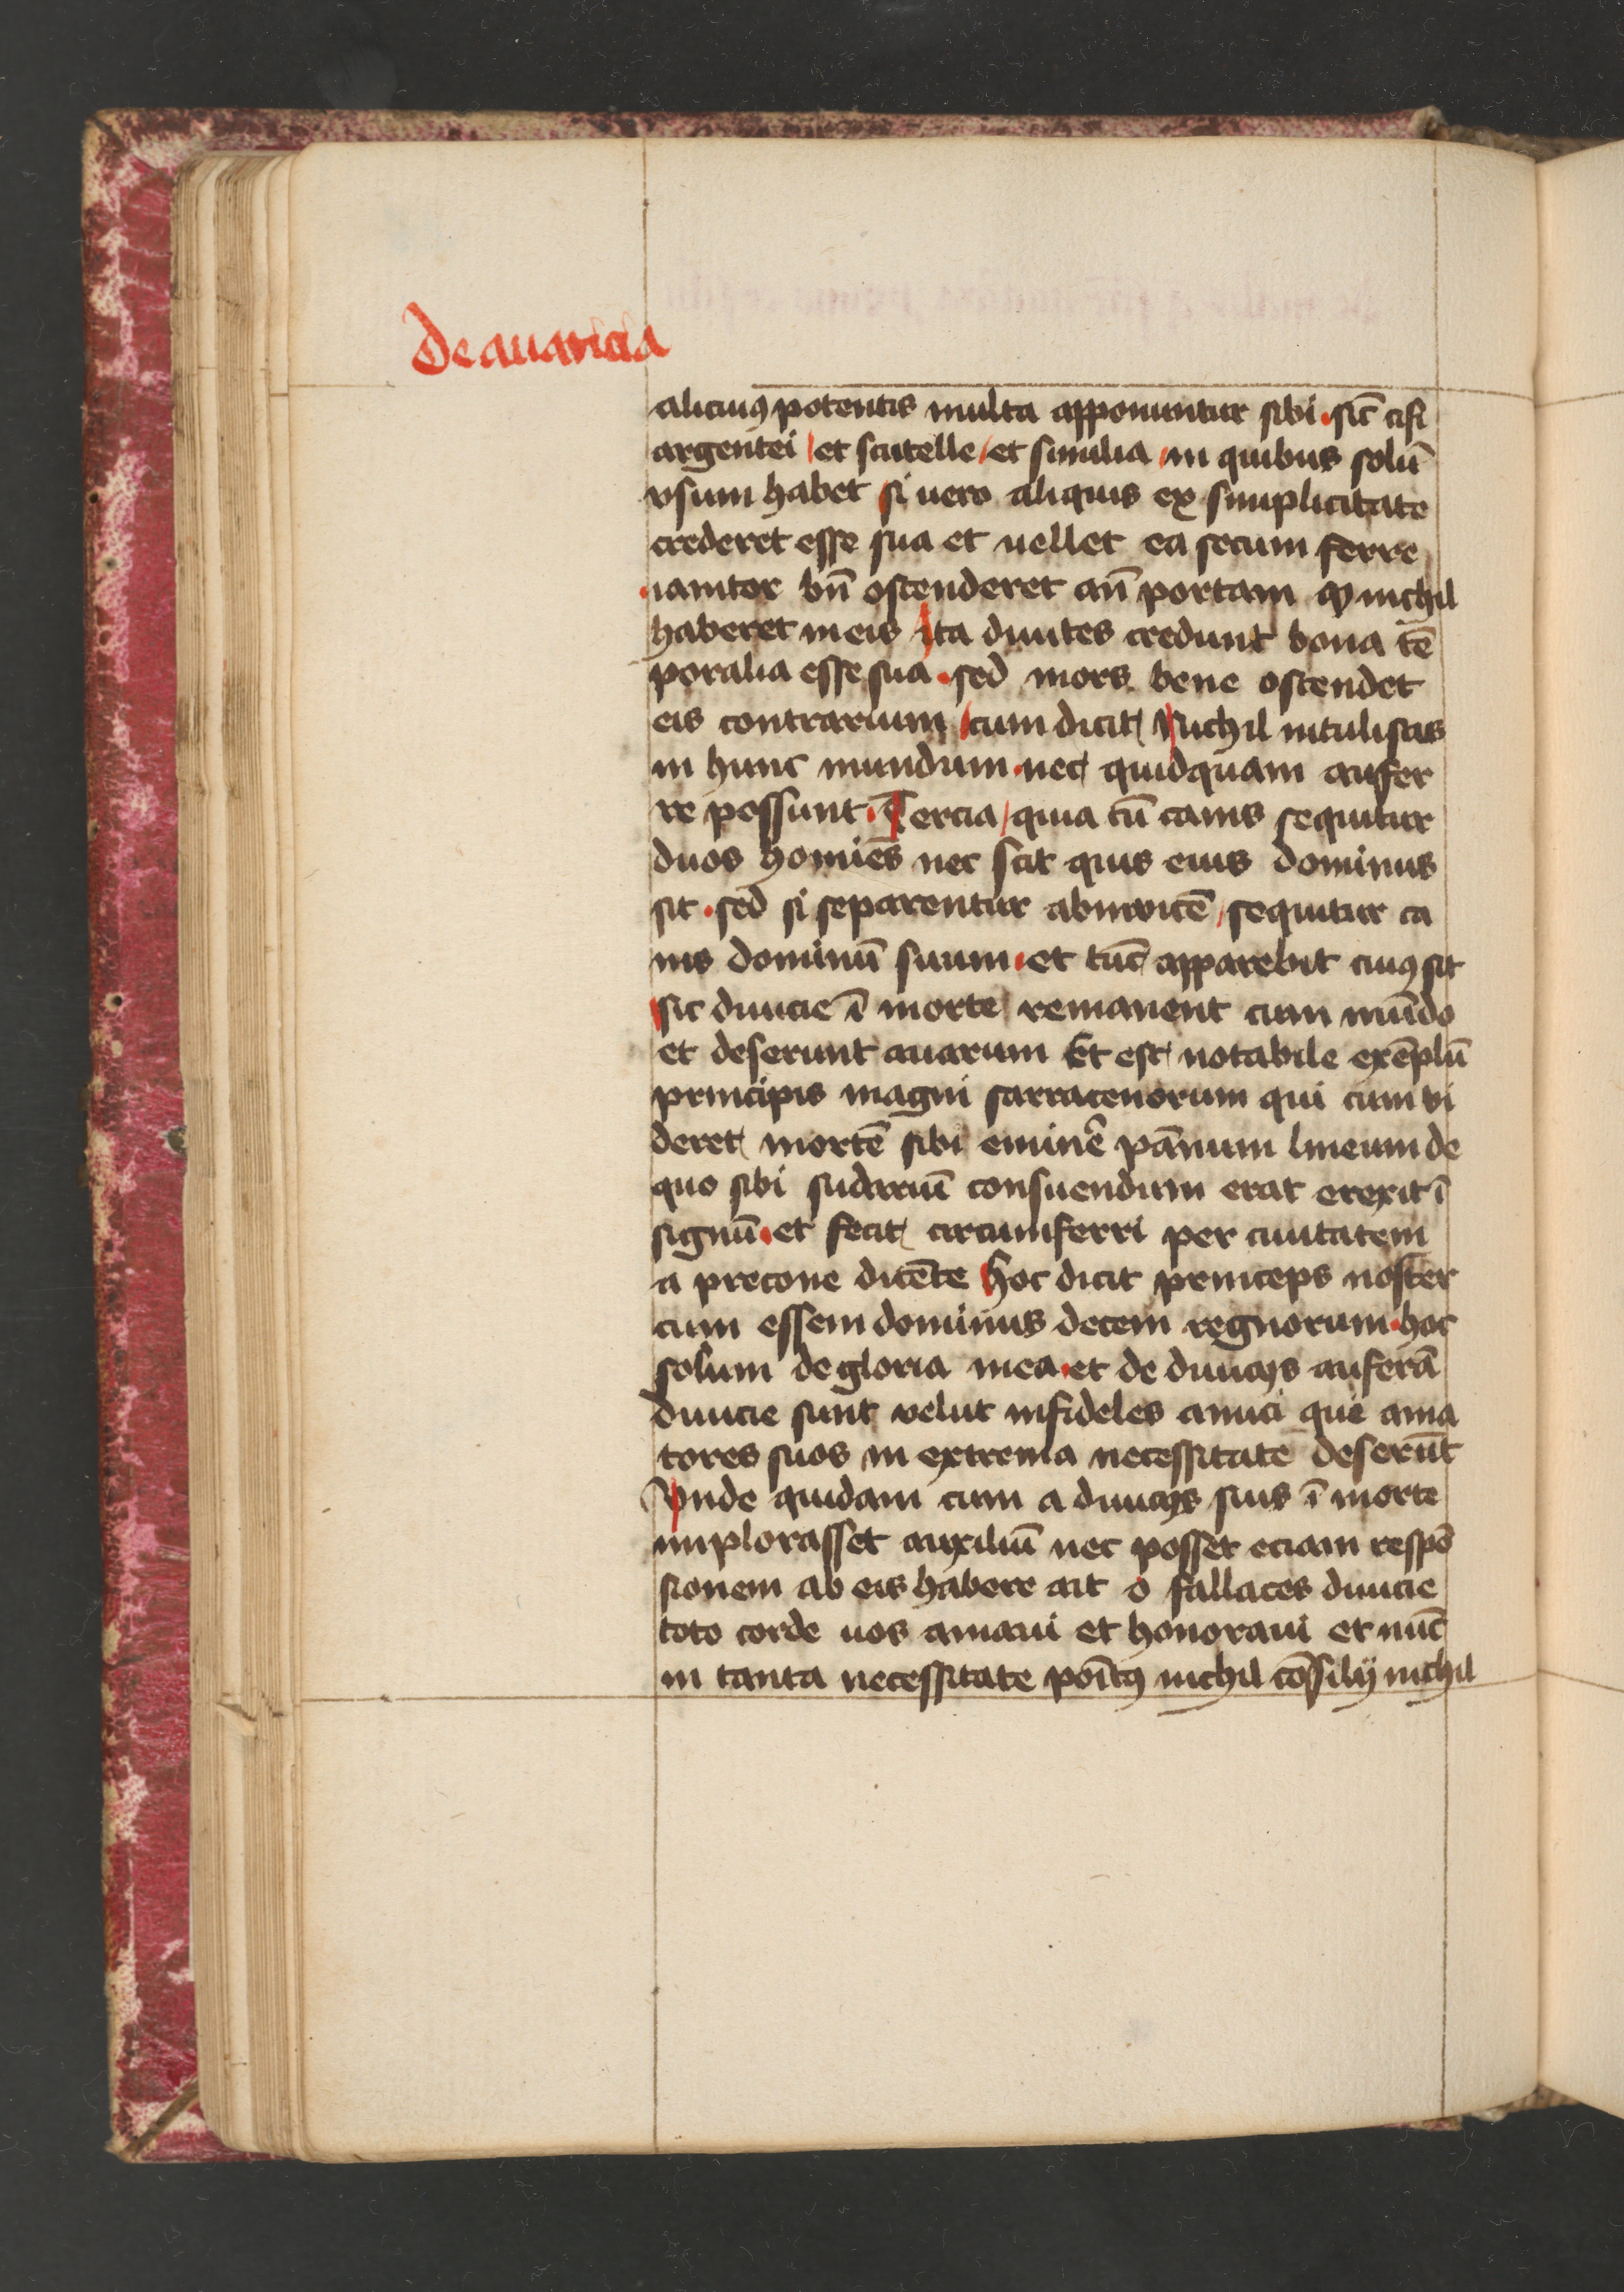 De auaricia
alicuiꝰ potentis multa apponuntur sibi · sic̄ cifi
argentei / et scutelle / et similia / in quibus solū
vsum habet si uero aliquis ex simplicitate
crederet esse sua et uellet ea secum ferre
· ianitor bn̄ ostenderet an̄ portam ꝙ nichil
haberet in eis ita diuites credunt bona tē
poralia esse sua · sed mors bene ostendet
eis contrarium / cum dicit Nichil intulistis
in hunc mundum · nec quidquam aufer
re possunt · Tercia / quia cū canis sequitur
duos homīes nec scit quis eius dominus
sit · sed si separentur abinvicē / sequitur ca
nis dominū suum · et tūc apparebit cuiꝰ sit
sic diuicie ī morte remanent cum mūdo
et deserunt auarum Et est notabile exēplū
principis magni sarracenorum qui cum vi
deret mortē sibi eminē pānum lineum de
quo sibi sudariū consuendum erat erexit ī
signū · et fecit circumferri per ciuitatem
a precone dicēte Hoc dicit princeps noster
cum essem dominus decem regnorum · hoc
solum de gloria mea · et de diuicijs auferā
diuicie sunt velut infideles amici qui ama
tores suos in extrema necessitate deserūt
Vnde quidam cum a diuicijs suis ī morte
implorasset auxiliū nec posset eciam respō
sionem ab eis habere ait o fallaces diuicie
toto corde uos amaui et honoraui et nūc
in tanta necessitate poītꝰ nichil cōsilij nichil